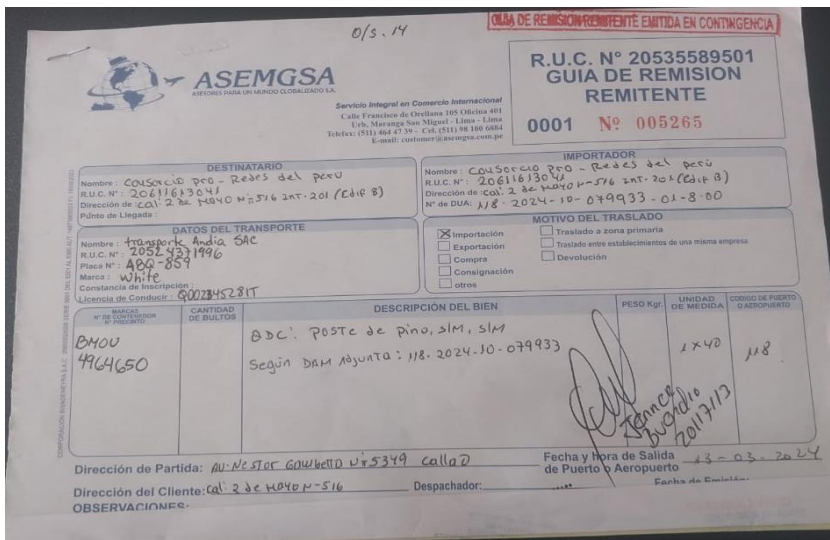 O/S. 14
GUIA DE REMISION REMITENTE EMITIDA EN CONTINGENCIA
ASEMGSA
ASESORES PARA UN MUNDO GLOBALIZADO S.A.
Servicio Integral en Comercio Internacional
Calle Francisco de Orellana 105 Oficina 401
Urb. Maranga San Miguel - Lima - Lima
Telefax: (511) 464 47 39 - Cel. (511) 98 100 6884
E-mail: customer@asemgsa.com.pe
R.U.C. N° 20535589501
GUIA DE REMISION
REMITENTE
0001 Nº 005265
DESTINATARIO
Nombre: Consorcio Pro - Redes del Peru
R.U.C. N°: 20611613041
Dirección de: cal: 2 de MAYO N=516 INT-201 (Edif B)
Punto de Llegada:
IMPORTADOR
Nombre: Consorcio pro - Redes del perú
R.U.C. N°: 20611613041
Dirección de: cal: 2 de MAYO N-516 INT-201 (Edif B)
N° de DUA: 118-2024-10-079933-01-8-00
DATOS DEL TRANSPORTE
Nombre: transporte Andia SAC
R.U.C. N°: 20524371996
Placa N°: ABQ-859
Marca: White
Constancia de Inscripción:
Licencia de Conducir:
MOTIVO DEL TRASLADO
X Importación
Exportación
Compra
Consignación
otros
Traslado a zona primaria
Traslado entre establecimientos de una misma empresa
Devolución
MARCAS N° DE CONTENEDOR N° PRECINTO
CANTIDAD DE BULTOS
DESCRIPCIÓN DEL BIEN
PESO Kgr.
UNIDAD DE MEDIDA
CODIGO DE PUERTO O AEROPUERTO
BMOU
4964650
BDC: POSTE de pino, S/M, S/M
Según DAM Adjunta: 118-2024-10-079933
1 x 40
118
20117113
Dirección de Partida: AV. Nestor Gambetta N=5349 Callao
Fecha y hora de Salida de Puerto o Aeropuerto 13-03-2024
Dirección del Cliente: cal: 2 de MAYO N-516
Despachador:
Fecha de Emisión:
OBSERVACIONES: